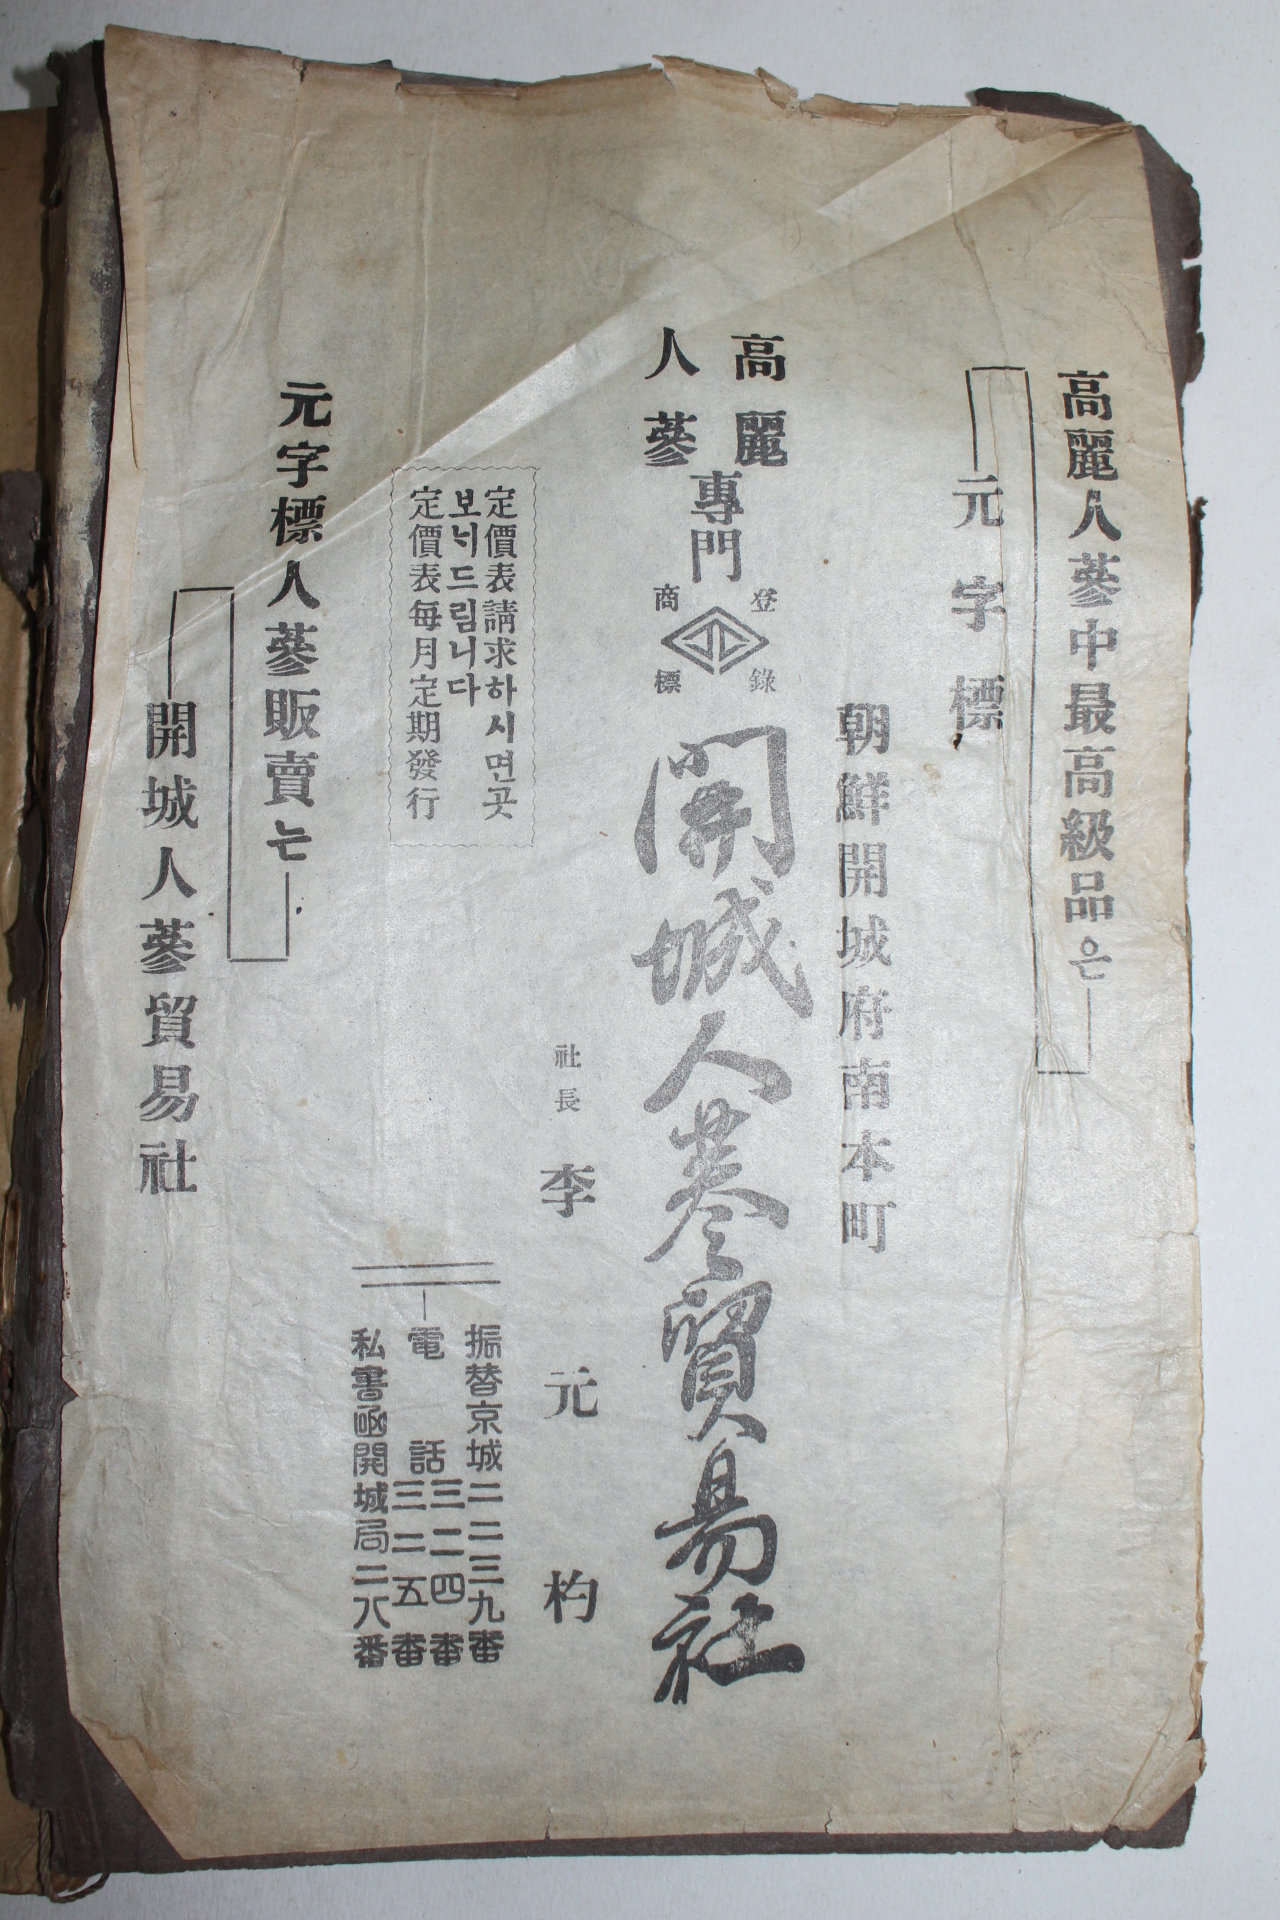 高麗人蔘中最高級品은
元字標
朝鮮開城府南本町
高麗
人蔘
專門
登錄
商標
開城人蔘貿易社
社長 李元杓
定價表請求하시면곳
보늬드림니다
定價表每月定期發行
振替京城二二三九番
電話三二四番
三二五番
私書函開城局二八番
元字標人蔘販賣는
開城人蔘貿易社